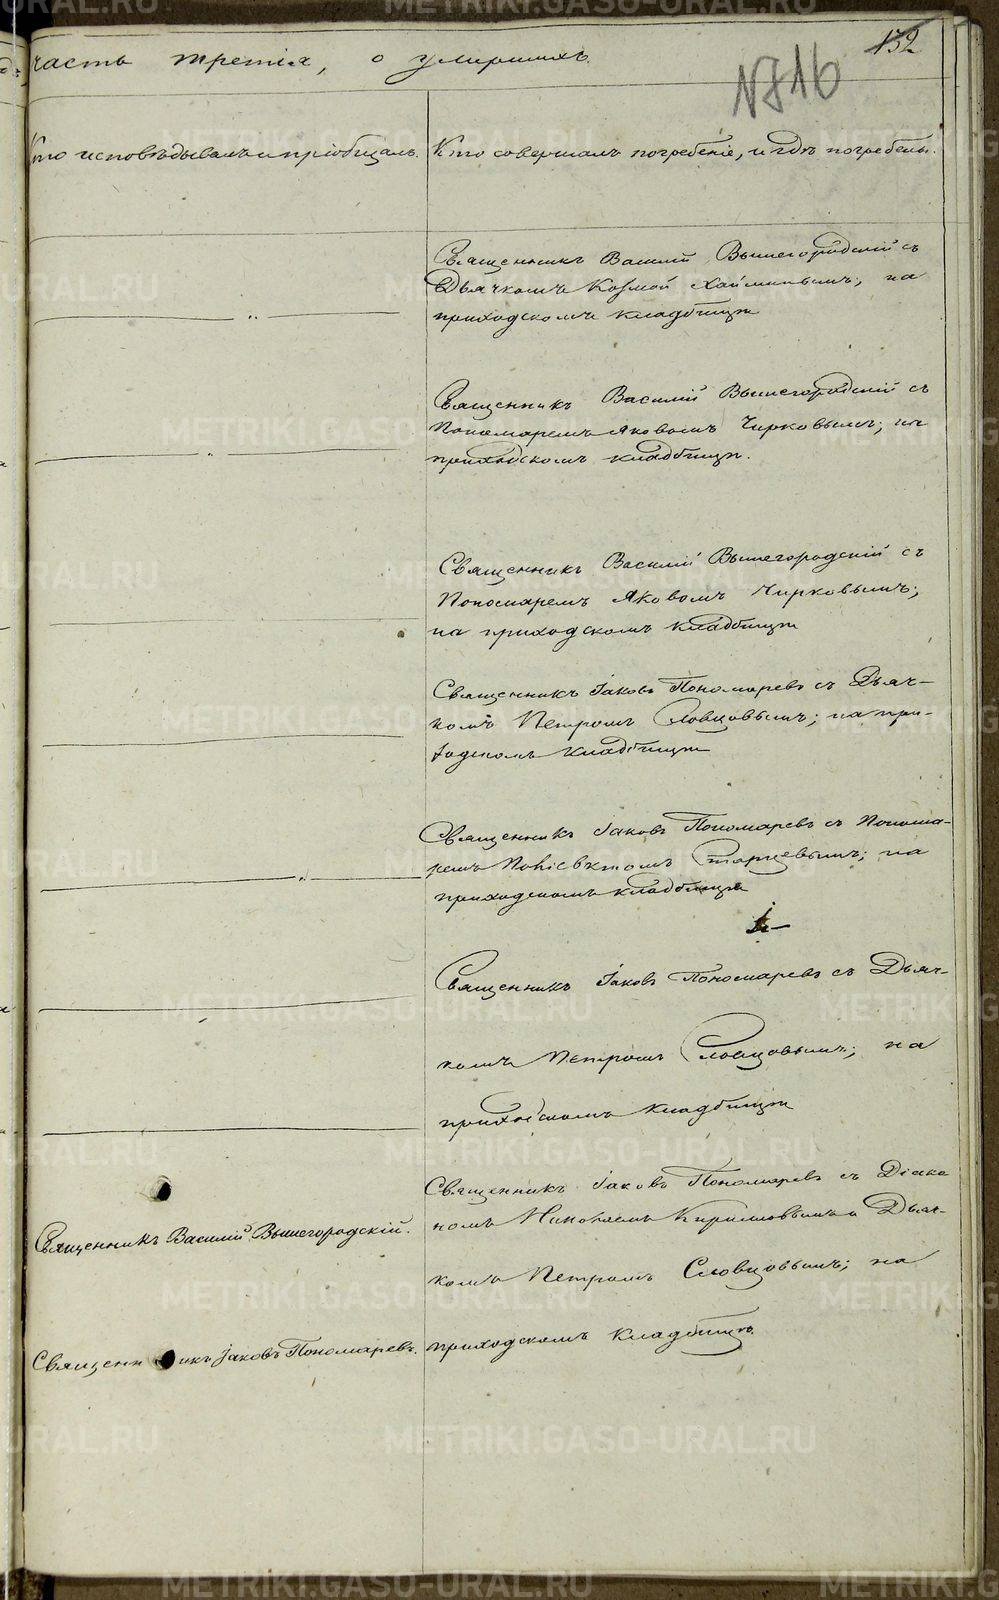 132
часть третія, о умершихъ.
№716
Кто исповѣдывалъ и пріобщалъ.
Кто совершалъ погребеніе, и гдѣ погребены.
Священникъ Василій Вышегородскій съ
Дьячкомъ Козмой на
приходскомъ кладбищѣ
Священникъ Василій Вышегородскій съ
Пономаремъ Яковомъ Чирковымъ; на
приходскомъ кладбищѣ.
Священникъ Василій Вышегородскій съ
Пономаремъ Яковомъ Чирковымъ;
на приходскомъ кладбищѣ
Священникъ Іаковъ Пономаревъ съ Дьяч-
комъ Петромъ Словцовымъ; на при-
ходскомъ кладбищѣ
Священникъ Іаковъ Пономаревъ съ Понома-
ремъ Старцевымъ; на
приходскомъ кладбищѣ
Священникъ Іаковъ Пономаревъ съ Дьяч-
комъ Петромъ Словцовымъ; на
приходскомъ кладбищѣ
Священникъ Василій Вышегородскій.
Священникъ Іаковъ Пономаревъ.
Священникъ Іаковъ Пономаревъ съ Діако
номъ Николаемъ Кирилловымъ и Дьяч-
комъ Петромъ Словцовымъ; на
приходскомъ кладбищѣ.
METRIKI.GASO-URAL.RU